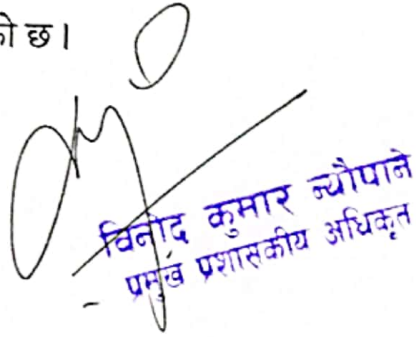 को छ।
विनोद कुमार न्यौपाने
प्रमुख प्रशासकीय अधिकृत